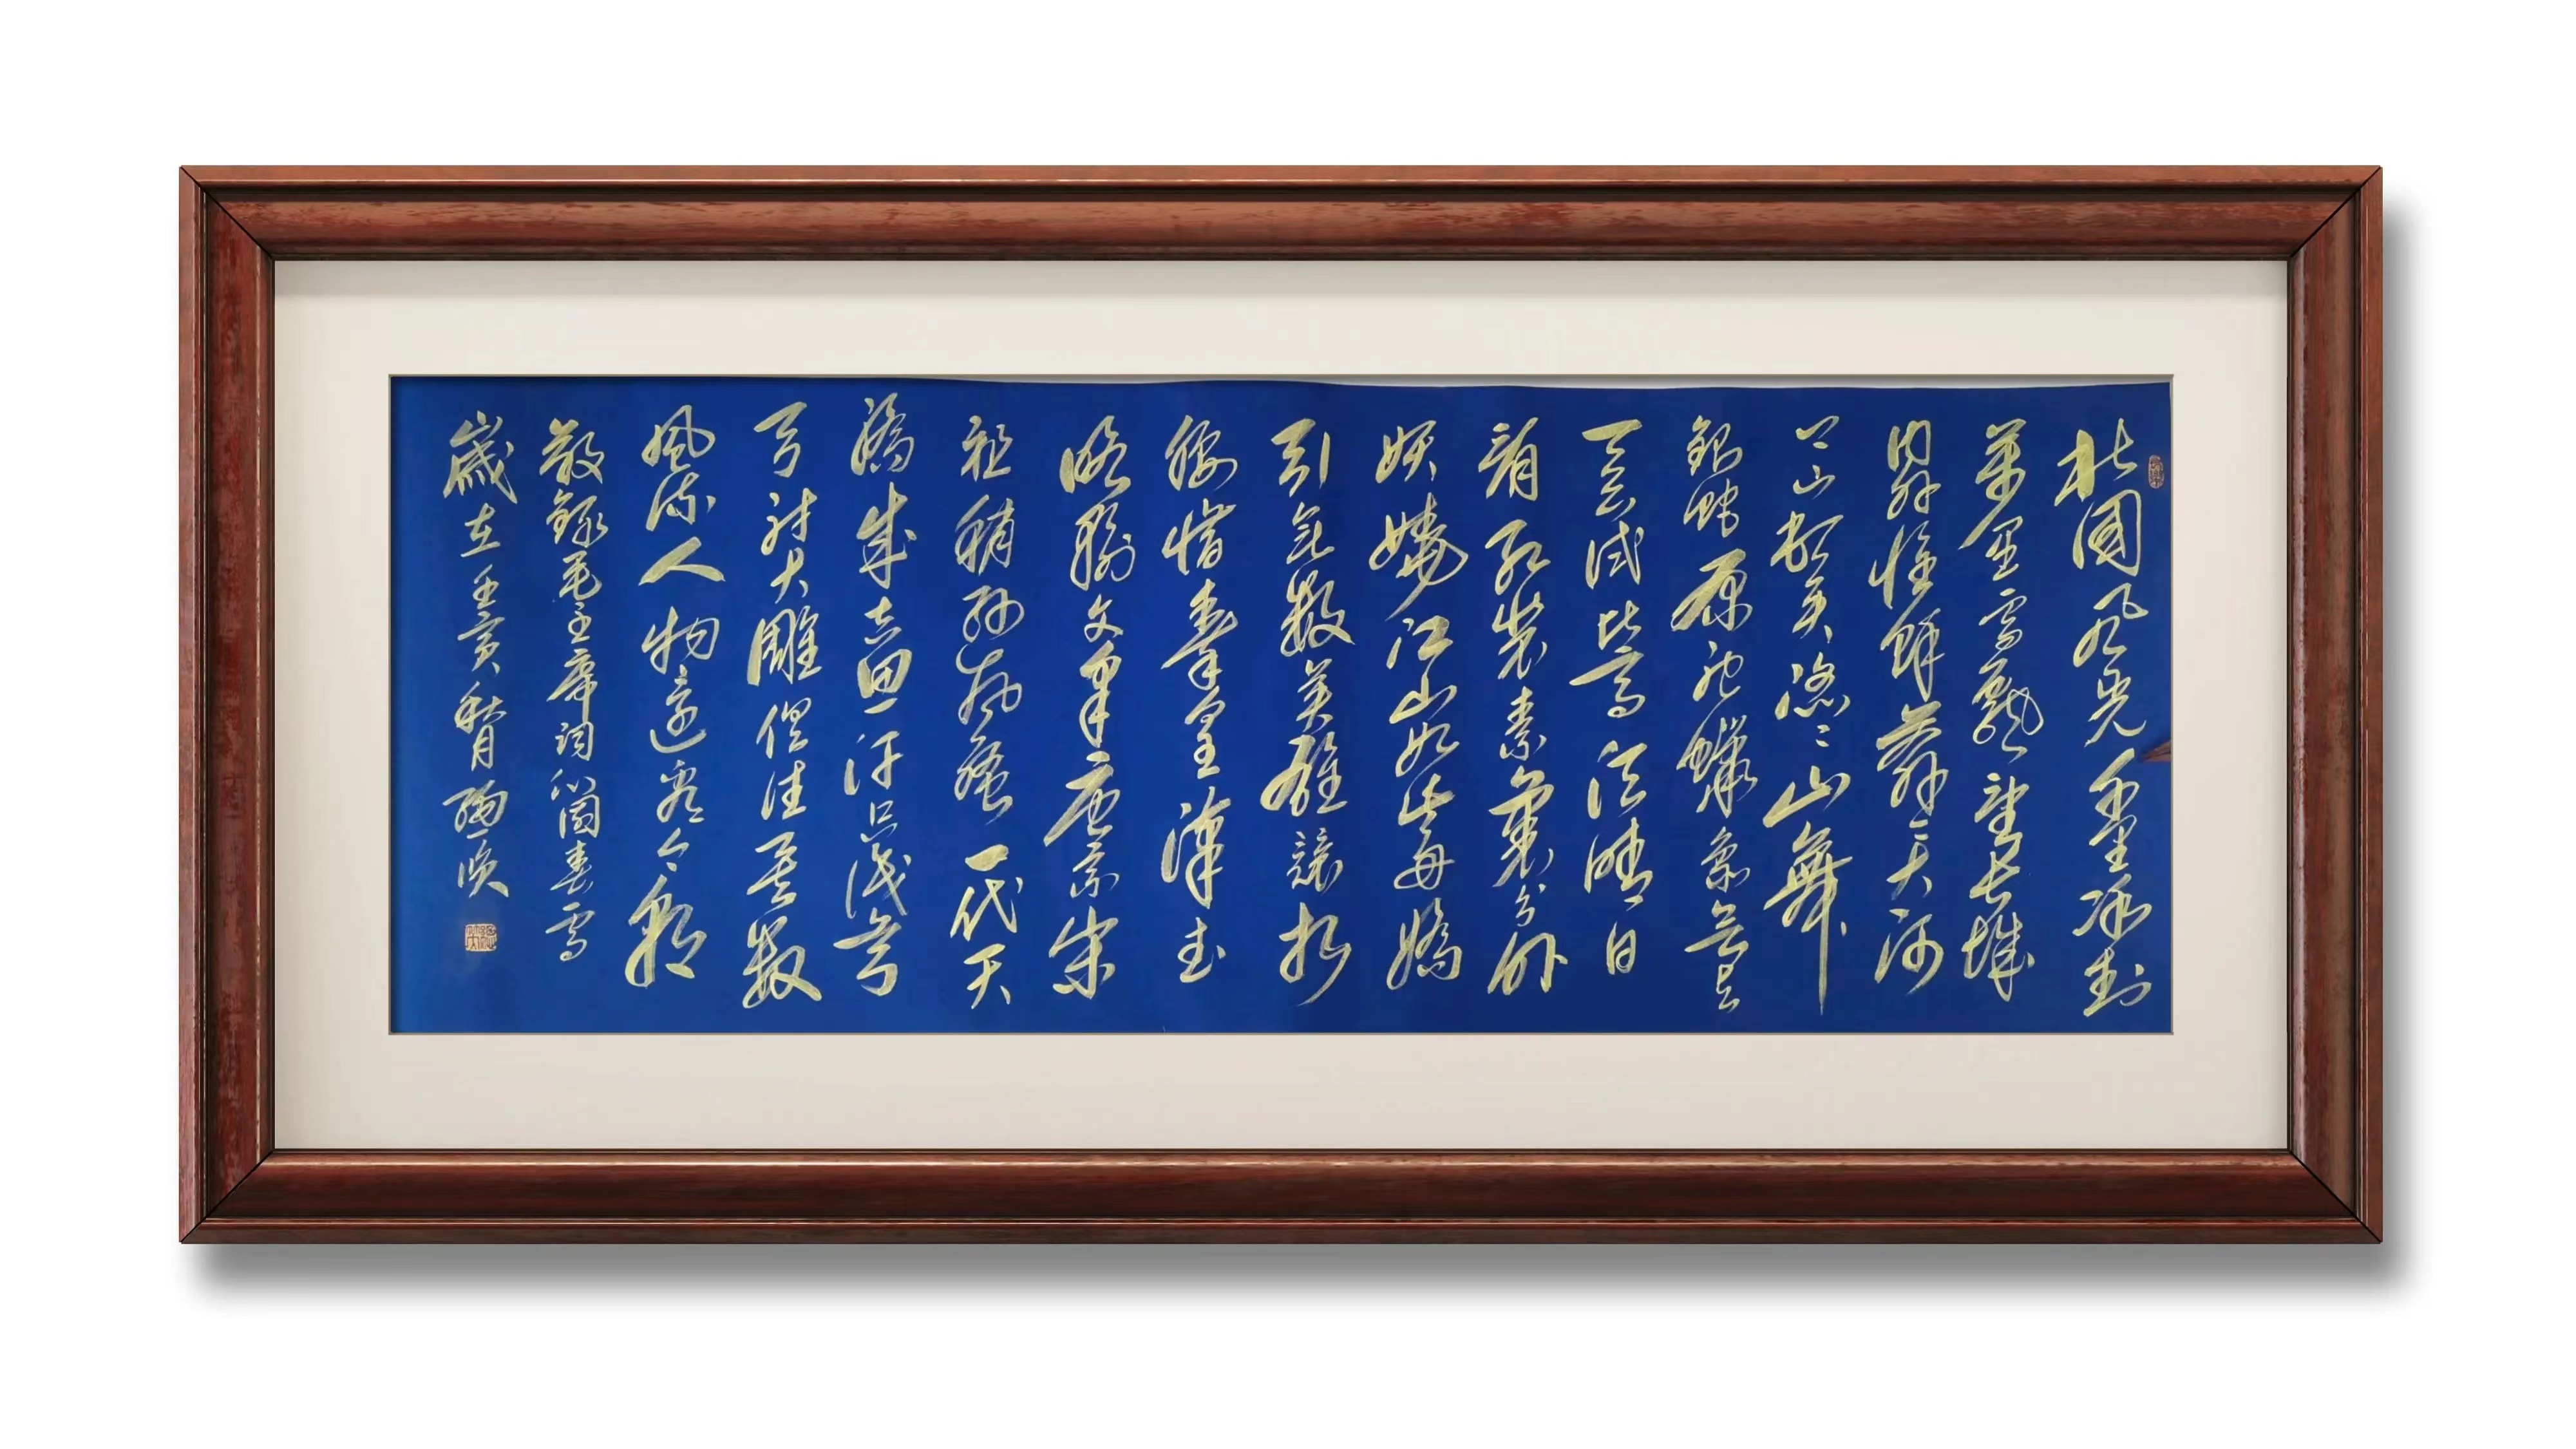 北國風光千里冰封
萬里雪飄望長城
内外惟餘莽莽大河
上下頓失滔滔山舞
銀蛇原馳蠟象欲与
天公試比高須晴日
看紅裝素裹分外
妖嬈江山如此多嬌
引無數英雄競折
腰惜秦皇漢武
略輸文采唐宗宋
祖稍遜風騷一代天
驕成吉思汗只識彎
弓射大雕俱往矣數
風流人物還看今朝
敬錄毛主席詞沁園春雪
歲在壬寅秋月